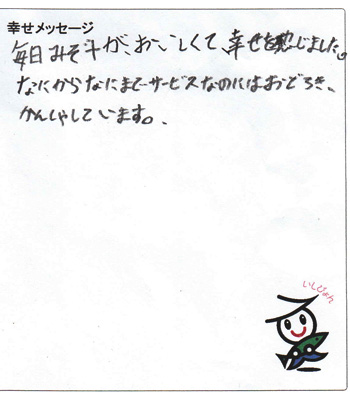 幸せメッセージ
毎日みそ汁が、おいしくて、幸せを感じました。
なにからなにまでサービスなのにはおどろき、
かんしゃしています。
いしぴょん